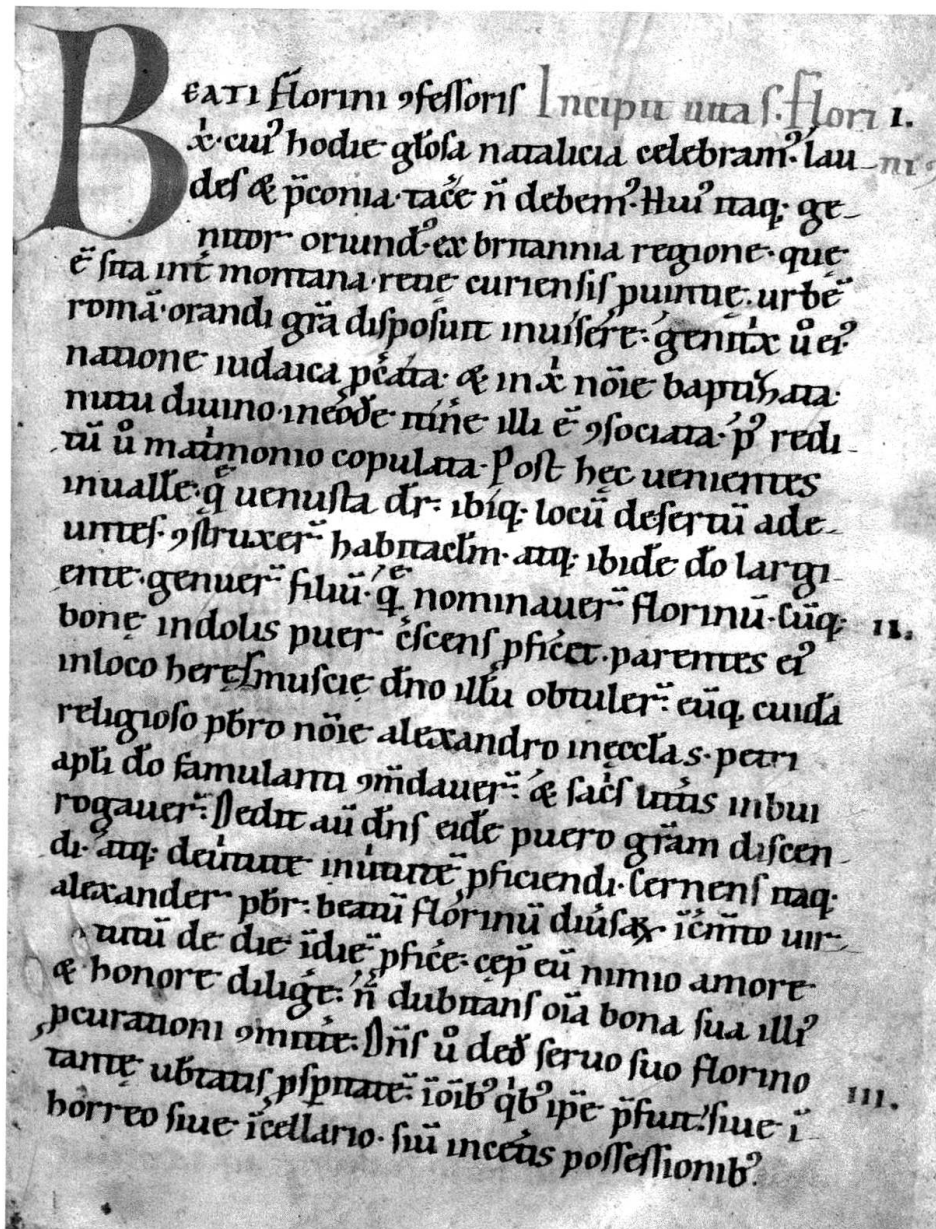 BEATI Florini ꝯfessoris Incipit uita s. Flori I.
x̄. cuiꝰ hodie gl̄osa natalicia celebramꝰ. lau- ni ꝯ
des & p̄conia. tac̄e n̄ debemꝰ. Huiꝰ itaq; ge-
nitor oriundꝰ. ex britannia regione. quę
ē sita int̄ montana retię curiensis puintię. urbē
romā. orandi gr̄a disposuit inuisere. genitx ů eiꝰ
natione iudaica pc̄ata. & in x̄ nōie baptizata.
nutu diuino. in eōdē itin̄e illi ē ꝯsociata. pꝰ redi
tū ů matmonio copulata. Post hęc uenientes
in uallē. q̄ uenusta dr̄. ibiq; locū desertū ade-
untes. ꝯstruxer̄ habitacl̄m. atq; ibidē dō largi
ente. genuer̄ filiū. q̄ nominauer̄ florinū. Cūq; II.
bonę indolis puer c̄scens pfic̄et. parentes eiꝰ
in loco heręmuscię dn̄o illū obtuler̄. eūq; cuidā
religioso pb̄ro nōie alexandro in ęccl̄a s. petri
apl̄i dō famulanti ꝯm̄dauer̄. & sac̄s litt̄is inbui
rogauer̄. Dedit aū dn̄s eidē puero gr̄am discen-
di. atq; de uirtute in uirtutē pficiendi. Cernens itaq;
alexander pbr̄. beatū florinū diuīsaꝝ īc̄m̄to uir-
tutū de die ī diē pfic̄e. cęp̄ eū nimio amore
& honore diliḡe. n̄ dubitans oīa bona sua illiꝰ
pcurationi ꝯmitt̄e. Dn̄s ů dedꝰ seruo suo florino
tantę ub̄tatis psp̄itatē. ī oīb; q̄b; ip̄e p̄fuit. siue ī III.
horreo siue ī cellario. siū in cet̄is possessionib;